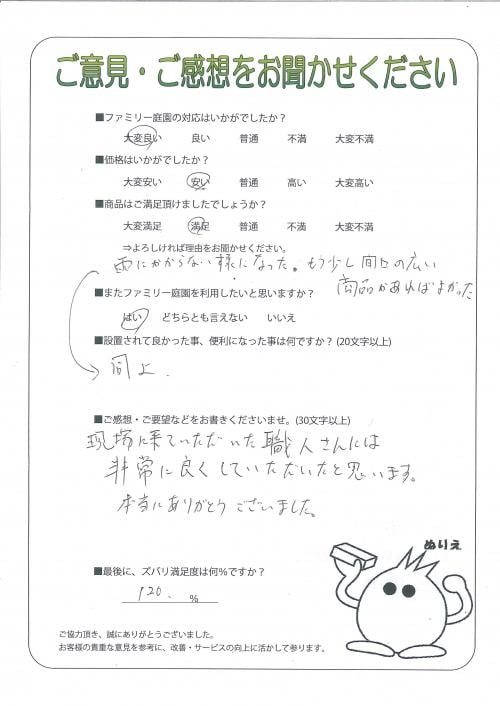 ご意見・ご感想をお聞かせください
■ファミリー庭園の対応はいかがでしたか？
大変良い 良い 普通 不満 大変不満
■価格はいかがでしたか？
大変安い 安い 普通 高い 大変高い
■商品はご満足頂けましたでしょうか？
大変満足 満足 普通 不満 大変不満
⇒よろしければ理由をお聞かせください。
雨にかからない様になった。もう少し間口の広い
商品があればよかった
■またファミリー庭園を利用したいと思いますか？
はい どちらとも言えない いいえ
■設置されて良かった事、便利になった事は何ですか？(20文字以上)
同上.
■ご感想・ご要望などをお書きくださいませ。(30文字以上)
現場に来ていただいた職人さんには
非常に良くしていただいたと思います。
本当にありがとうございました。
ぬりえ
■最後に、ズバリ満足度は何％ですか？
120. %
ご協力頂き、誠にありがとうございました。
お客様の貴重な意見を参考に、改善・サービスの向上に活かして参ります。